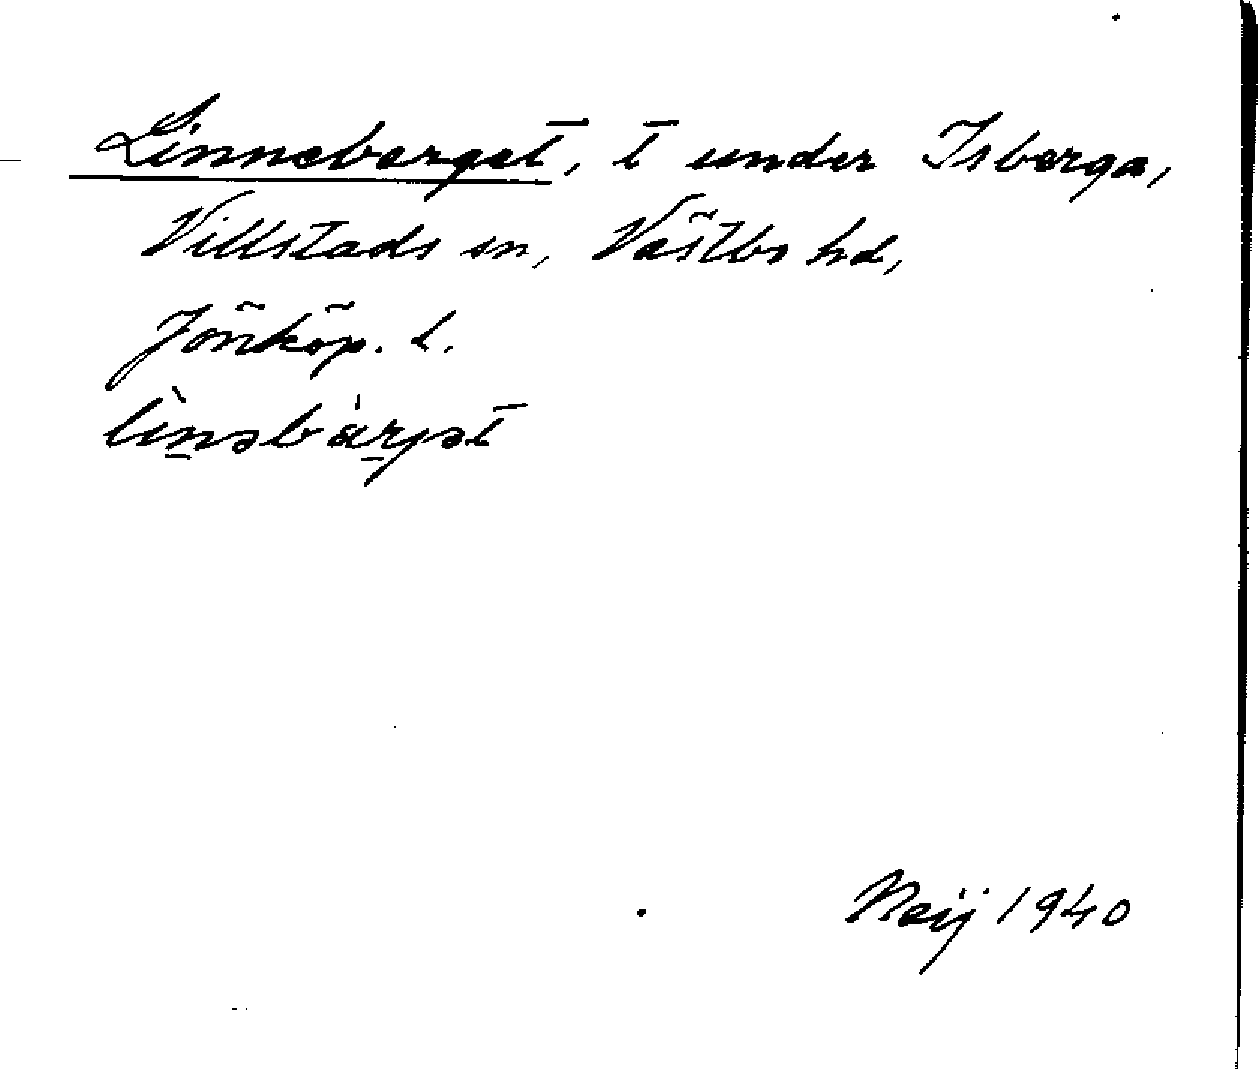 Linneberget, t under Isberga,
Villstads sn, Västbo hd,
Jönköp. l.
linəbärjət
1940